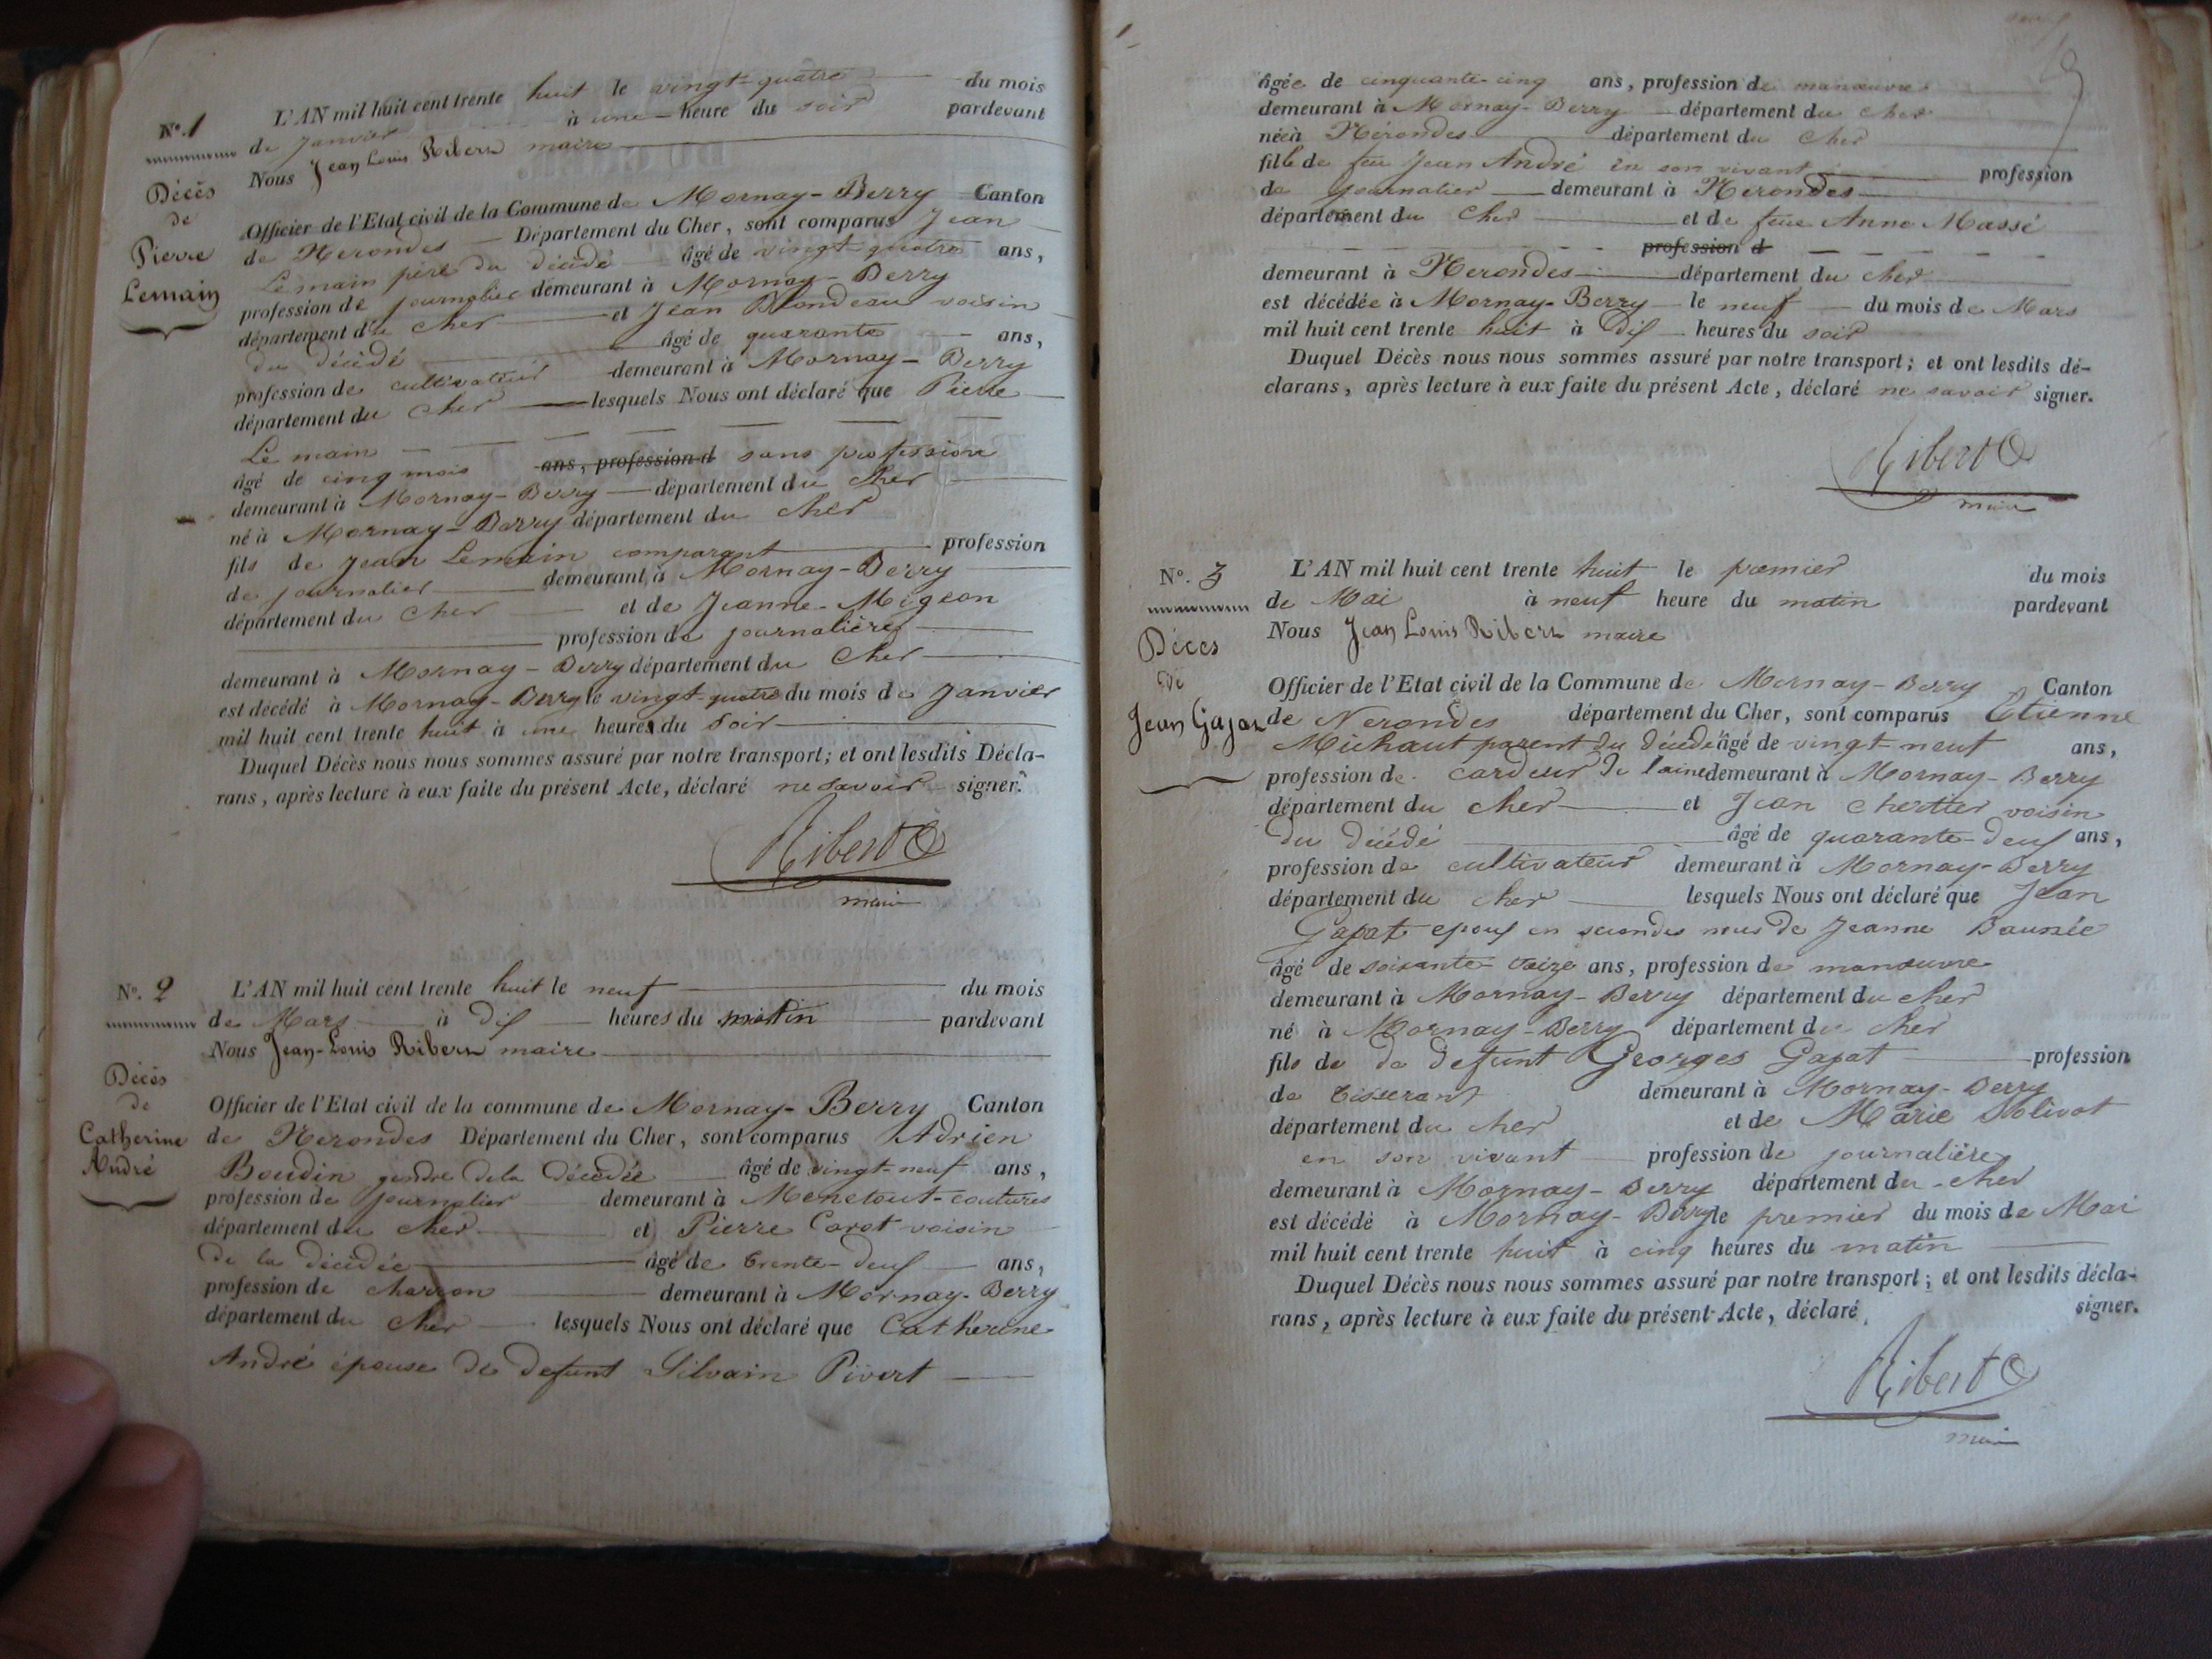 N°. 1
L'AN mil huit cent trente huit le vingt-quatre du mois
de Janvier à une heure du soir pardevant
Nous Jean Louis Ribert maire
Décès
de
Pierre
Lemain
Officier de l'Etat civil de la Commune de Mornay-Berry Canton
de Nerondes Département du Cher, sont comparus Jean
Lemain père du décédé âgé de vingt-quatre ans,
profession de journalier demeurant à Mornay-Berry
département du Cher et Jean Blondeau voisin
du décédé âgé de quarante ans,
profession de cultivateur demeurant à Mornay-Berry
département du Cher lesquels Nous ont déclaré que Pierre
Le main
âgé de cinq mois ans, profession d sans profession
demeurant à Mornay-Berry département du Cher
né à Mornay-Berry département du Cher
fils de Jean Lemain comparant profession
de journalier demeurant à Mornay-Berry
département du Cher et de Jeanne Migeon
profession de journalière
demeurant à Mornay-Berry département du Cher
est décédé à Mornay-Berry le vingt-quatre du mois de Janvier
mil huit cent trente huit à une heures du soir
Duquel Décès nous nous sommes assuré par notre transport; et ont lesdits Décla-
rans, après lecture à eux faite du présent Acte, déclaré ne savoir signer.
Ribert
maire
N°. 2
L'AN mil huit cent trente huit le neuf du mois
de Mars à dix heures du matin pardevant
Nous Jean-Louis Ribert maire
Décès
de
Catherine
André
Officier de l'Etat civil de la commune de Mornay-Berry Canton
de Nerondes Département du Cher, sont comparus Adrien
Boudin gendre de la décédée âgé de vingt-neuf ans,
profession de journalier demeurant à Menetout-coutures
département du Cher et Pierre Carot voisin
de la décédée âgé de trente-deux ans,
profession de charron demeurant à Mornay-Berry
département du Cher lesquels Nous ont déclaré que Catherine
André épouse de defunt Silvain Pivert
âgée de cinquante-cinq ans, profession de manœuvre
demeurant à Mornay-Berry département du Cher
née à Nérondes département du Cher
fille de feu Jean André en son vivant profession
de journalier demeurant à Nerondes
département du Cher et de feue Anne Massé
profession d
demeurant à Nerondes département du Cher
est décédée à Mornay-Berry le neuf du mois de Mars
mil huit cent trente huit à dix heures du soir
Duquel Décès nous nous sommes assuré par notre transport; et ont lesdits dé-
clarans, après lecture à eux faite du présent Acte, déclaré ne savoir signer.
Ribert
maire
N°. 3
L'AN mil huit cent trente huit le premier du mois
de Mai à neuf heure du matin pardevant
Nous Jean Louis Ribert maire
Déces
de
Jean Gajat
Officier de l'Etat civil de la Commune de Mornay-Berry Canton
de Nerondes département du Cher, sont comparus Étienne
Michaut parent du décédé âgé de vingt-neuf ans,
profession de cardeur de laine demeurant à Mornay-Berry
département du Cher et Jean Chertier voisin
du décédé âgé de quarante-deux ans,
profession de cultivateur demeurant à Mornay-Berry
département du Cher lesquels Nous ont déclaré que Jean
Gajat epoux en secondes noces de Jeanne
âgé de soixante-treize ans, profession de manœuvre
demeurant à Mornay-Berry département du Cher
né à Mornay-Berry département du Cher
fils de de defunt Georges Gajat profession
de tisserant demeurant à Mornay-Berry
département du Cher et de Marie Solivot
en son vivant profession de journalière
demeurant à Mornay-Berry département du Cher
est décédé à Mornay-Berry le premier du mois de Mai
mil huit cent trente huit à cinq heures du matin
Duquel Décès nous nous sommes assuré par notre transport; et ont lesdits décla-
rans, après lecture à eux faite du présent Acte, déclaré signer.
Ribert
maire